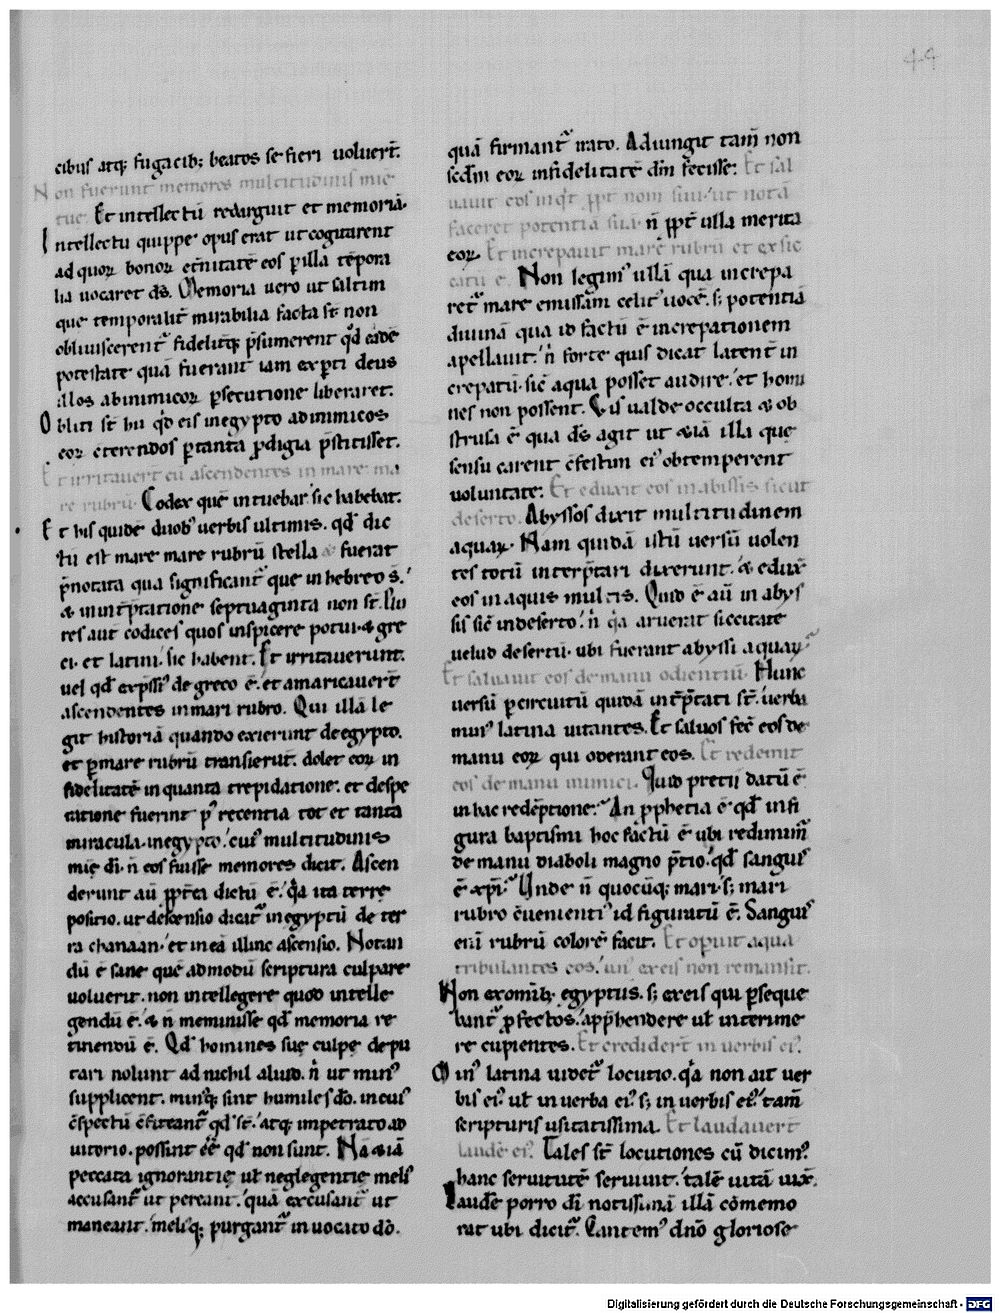 44
cibus atq; fugacib; beatos se fieri uoluert̄.
Non fuerunt memores multitudinis mie
tue. Et intellectū redarguit et memoriā.
Intellectu quippe opus erat ut cogitarent
ad quoꝝ bonoꝝ et̄nitatē eos ꝑ illa tēpora
lia uocaret dс̄. Memoria uero ut saltim
que temporalit̄ mirabilia facta st̄ non
obliuiscerent᷒ fidelitq; p̄sumerent qđ eadē
potestate quā fuerant iam exꝑti deus
illos ab inimicoꝝ ꝑsecutione liberaret.
Obliti st̄ hii qđ eis in egypto ad inimicos
eoꝝ c̄terendos ꝑ tanta ꝓdigia p̄stitisset.
Et irritauert̄ eū ascendentes in mare ma
re rubrū. Codex quē intuebar sic habebat.
Et his quidē duob᷒ uerbis ultimis. qđ dic
tū est mare mare rubrū stella fuerat
p̄notata qua significant᷒ que in hebreo s̄.
& in int̄p̄tatione septuaginta non st̄. Plu
res aut codices quos inspicere potui. & gre
ci. et latini. sic habent. Et irritauerunt.
uel qđ exp̄ssi᷒ de greco ē. et amaricauert̄
ascendentes in mari rubro. Qui illā le
git historiā quando exierunt de egypto.
et ꝑ mare rubrū transierut̄. dolet eoꝝ in
fidelitatē in quanta trepidatione. et despe
ratione fuerint p᷒ recentia tot et tanta
miracula. in egypto. cui᷒ multitudinis
mię di. n̄ eos fuisse memores dicit. Ascen
derunt aū ꝓpt̄ea dictū ē. q̄a ita terre
positio. ut descensio dicit᷒ in egyptū de ter
ra chanaan. et in eā illinc ascensio. Notan
dū ē sane quē admodū scriptura culpare
voluerit. non intellegere quod intelle
gendū ē. & n̄ meminisse qđ memoria re
tinendū ē. Qđ homines suę culpę depu
tari nolunt ad nichil aliud. n̄ ut min᷒
supplicent. minq; sint humiles dō. in cui᷒
c̄spectū c̄fiteant᷒ qđ st̄. atq; impetrato ad
iutorio. possint eē qđ non sunt. Nā & iā
peccata ignorantię ut̄ neglegentię meli᷒
accusant᷒ ut pereant. quā excusant᷒ ut
maneant. meliq; purgant᷒ inuocato dō.
quā firmant᷒ irato. Adiungit tam̄ non
scđm eoꝝ infidelitatē dn̄m fecisse. Et sal
uauit eos inqt᷒ ꝓpt̄ nom̄ suū. ut notā
faceret potentiā suā. n̄ ꝓpt̄ ulla merita
eoꝝ. Et increpauit marē rubrū et exsic
catū ē. Non legim᷒ ullā qua increpa
ret᷒ mare emissam celit᷒ uocē. s; potentiā
diuinā qua id factū ē increpationem
apellauit. n̄ forte quis dicat latent̄ in
crepatū. sic̄ aqua posset audire. et homi
nes non possent. Vis ualde occulta & ob
strusa ē qua dс̄ agit ut &iā illa que
sensu carent c̄festim ei᷒ obtemperent
uoluntate. Et eduxit eos in abissis sicut
deserto. Abyssos dixit multitudinem
aquaꝝ. Nam quidā istū uersū uolen
tes totū interp̄tari dixerunt. & eduxit
eos in aquis multis. Quid ē aū in abys
sis sic̄ in deserto. n̄ q̄a aruerat siccitate
uelud desertū. ubi fuerant abyssi aquaꝝ
Et saluauit eos de manu odientiū. Hunc
uersū ꝑ circuitū quidā int̄p̄tati st̄. uerba
min᷒ latina uitantes. Et saluos fec̄ eos de
manu eoꝝ qui oderant eos. Et redemit
eos de manu inimici. Quid pretii datū ē
in hac redēptione. An ꝓphetia ē qđ in fi
gura baptismi hoc factū ē ubi redimim᷒
de manu diaboli magno p̄tio. qđ sangui᷒
ē xp̄i. Unde n̄ quocūq; mari. s; mari
rubro c̄uenienti᷒ id figuratū ē. Sangui᷒
eni rubrū colorē facit. Et opuit aqua
tribulantes eos. un᷒ ex eis non remansit.
Non ex omib; egyptus. s; ex eis qui ꝑseque
bant᷒ ꝓfectos. app̄hendere ut̄ interime
re cupientes. Et crediderт̄ in uerbis ei᷒.
Min᷒ latina uidet᷒ locutio. q̄a non ait uer
bis ei᷒. ut̄ in uerba ei᷒. s; in uerbis ei᷒. tam̄
scripturis usitatissima. Et laudauert̄
laudē ei᷒. Tales st̄ locutiones cū dicim᷒
hanc seruitutē seruiuit. talē uitā uix̄.
Laudē porro di notissimā illā cōmemo
rat ubi dicit᷒. Cantem᷒ dn̄o gloriose
Digitalisierung gefördert durch die Deutsche Forschungsgemeinschaft - DFG